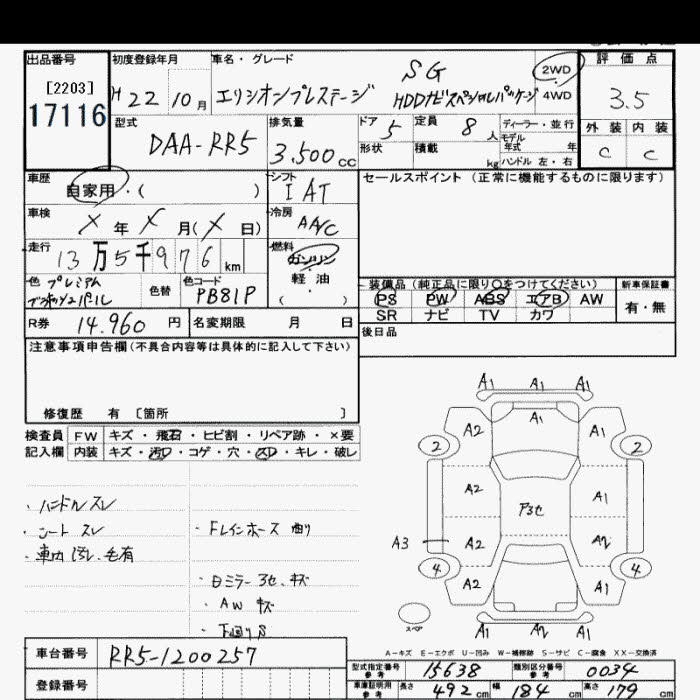 出品番号 初度登録年月 車名・グレード 評価点
[2203]
17116
H22 10月 エリシオンプレステージ SG
HDDナビスペシャルパッケージ
2WD
4WD
3.5
型式 排気量 ドア 定員 ディーラー・並行 外装 内装
DAA-RR5 3.500cc 5 8人 モデル年式 年
形状 積載 kg ハンドル 左・右 C C
車歴 シフト セールスポイント(正常に機能するものに限ります)
自家用・( ) IAT
車検 冷房
X年X月(X日) A/C
走行 燃料
13万5千976km ガソリン
軽油
( )
色 プレミアム 色替 色コード
PB81P
装備品(純正品に限り○をつけてください) 新車保証書
PS PW ABS エアB AW 有・無
SR ナビ TV カワ
R券 14.960円 名変期限 月 日 後日品
注意事項申告欄(不具合内容等は具体的に記入して下さい)
修復歴 有 〔箇所 〕
検査員 FW キズ・飛石・ヒビ割・リペア跡・×要
記入欄 内装 キズ・汚レ・コゲ・穴・スレ・キレ・破レ
・ハンドルスレ
・シートスレ
・車内汚レ、毛有
・ドレインホース曲り
・日ミラー3セ、キズ
・AWキズ
・下廻りS
A1 A1 A1
A2 A1 A1
2 2
A2 A1
ア3セ
A3 A2
4 4
A2 A1
スペア
A1 A1
A-キズ E-エクボ U-凹み W-補修跡 S-サビ C-腐食 XX-交換済
車台番号 RR5-1200257
登録番号
型式指定番号 参考 15638 類別区分番号 参考 0034
車庫証明用 参考 長さ 492cm 幅 184cm 高さ 179cm